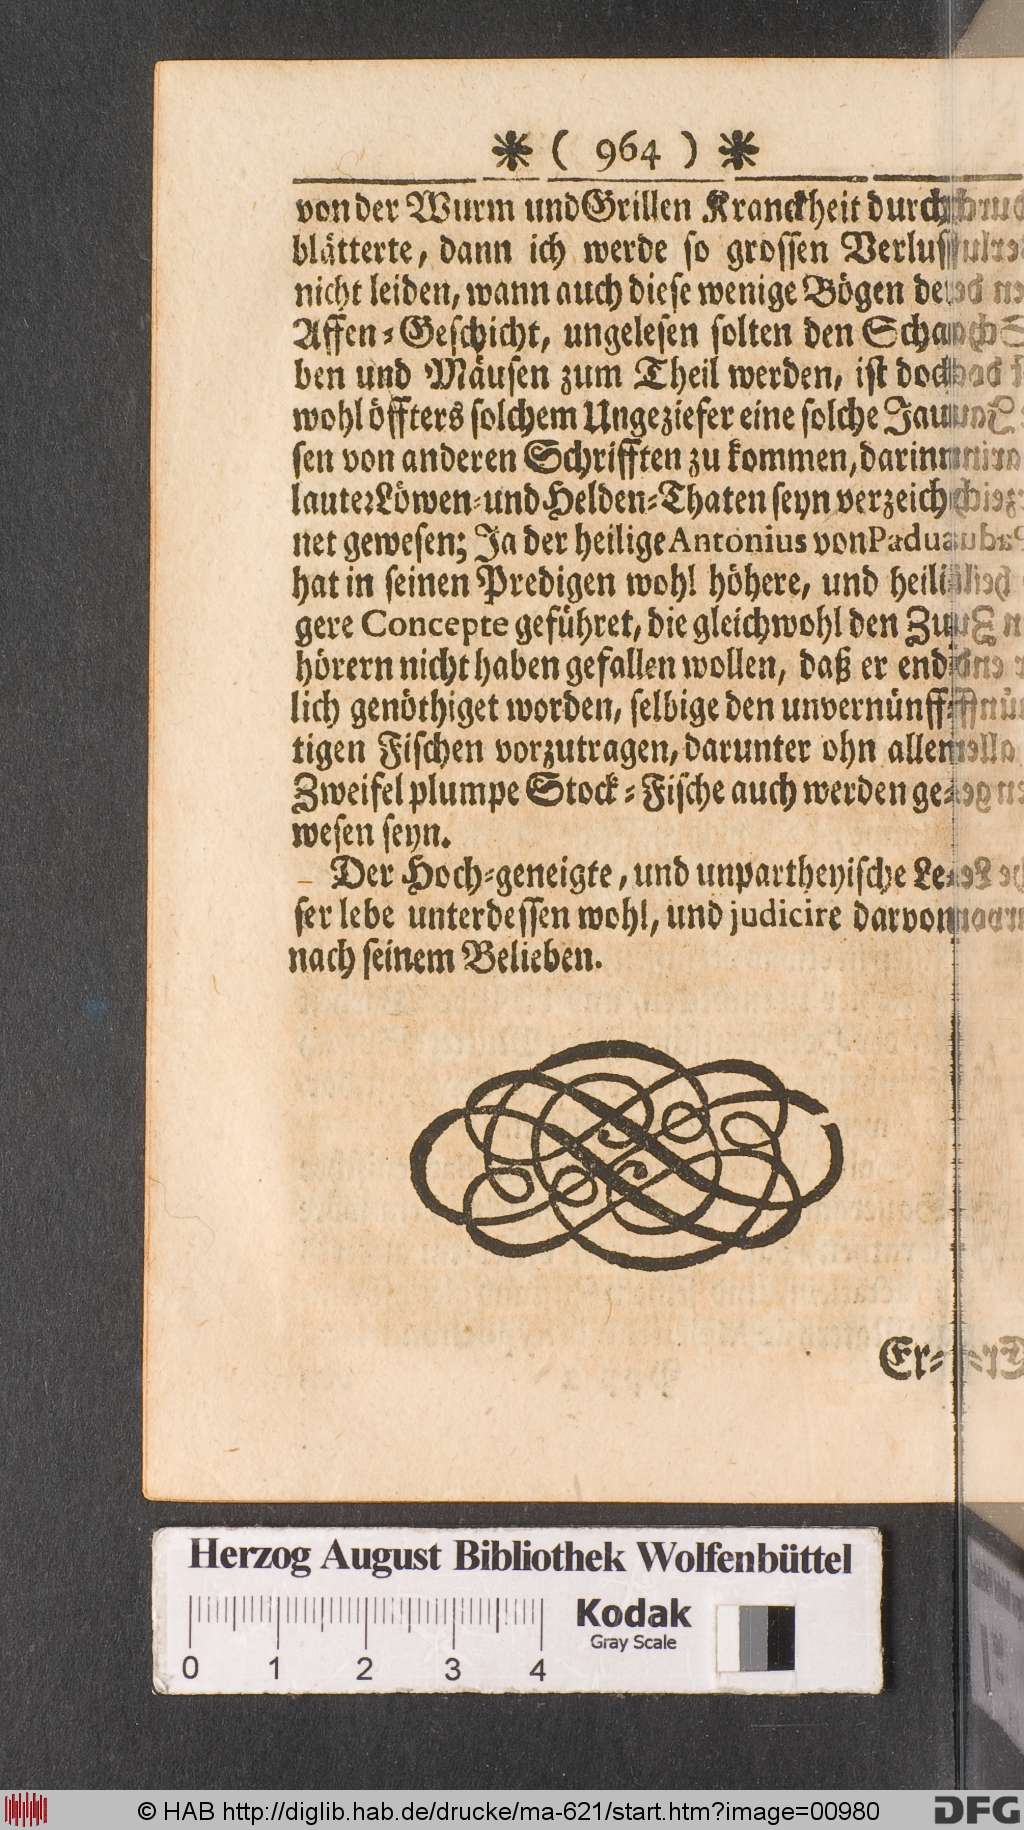 ✻ ( 964 ) ✻
von der Wurm und Grillen Kranckheit durch
blätterte, dann ich werde so grossen Verlust
nicht leiden, wann auch diese wenige Bögen der
Affen-Geschicht, ungelesen solten den Scha-
ben und Mäusen zum Theil werden, ist doch
wohl öffters solchem Ungeziefer eine solche Jau-
sen von anderen Schrifften zu kommen, darinn
lauter Löwen- und Helden-Thaten seyn verzeich-
net gewesen; Ja der heilige Antonius von Padua
hat in seinen Predigen wohl höhere, und heili-
gere Concepte geführet, die gleichwohl den Zu-
hörern nicht haben gefallen wollen, daß er end-
lich genöthiget worden, selbige den unvernünff-
tigen Fischen vorzutragen, darunter ohn allem
Zweifel plumpe Stock-Fische auch werden ge-
wesen seyn.
Der Hoch-geneigte, und unpartheyische Le-
ser lebe unterdessen wohl, und judicire darvon
nach seinem Belieben.
Er-
Herzog August Bibliothek Wolfenbüttel
Kodak
Gray Scale
0 1 2 3 4
© HAB http://diglib.hab.de/drucke/ma-621/start.htm?image=00980
DFG